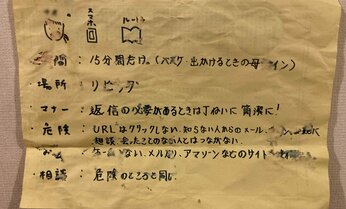 スマホ ルール
間：15分間だけ。(バスケ・出かけるときの母
場所：リビング
マナー：返信の必要があるときはていねいに簡潔に！
危険：URLはクリックしない、知らない人からのメール、
相談、会ったことのない人とはつながない。
ゲームしない、メルカリ、アマゾンなどのサイト
相談：危険のところと同じ。